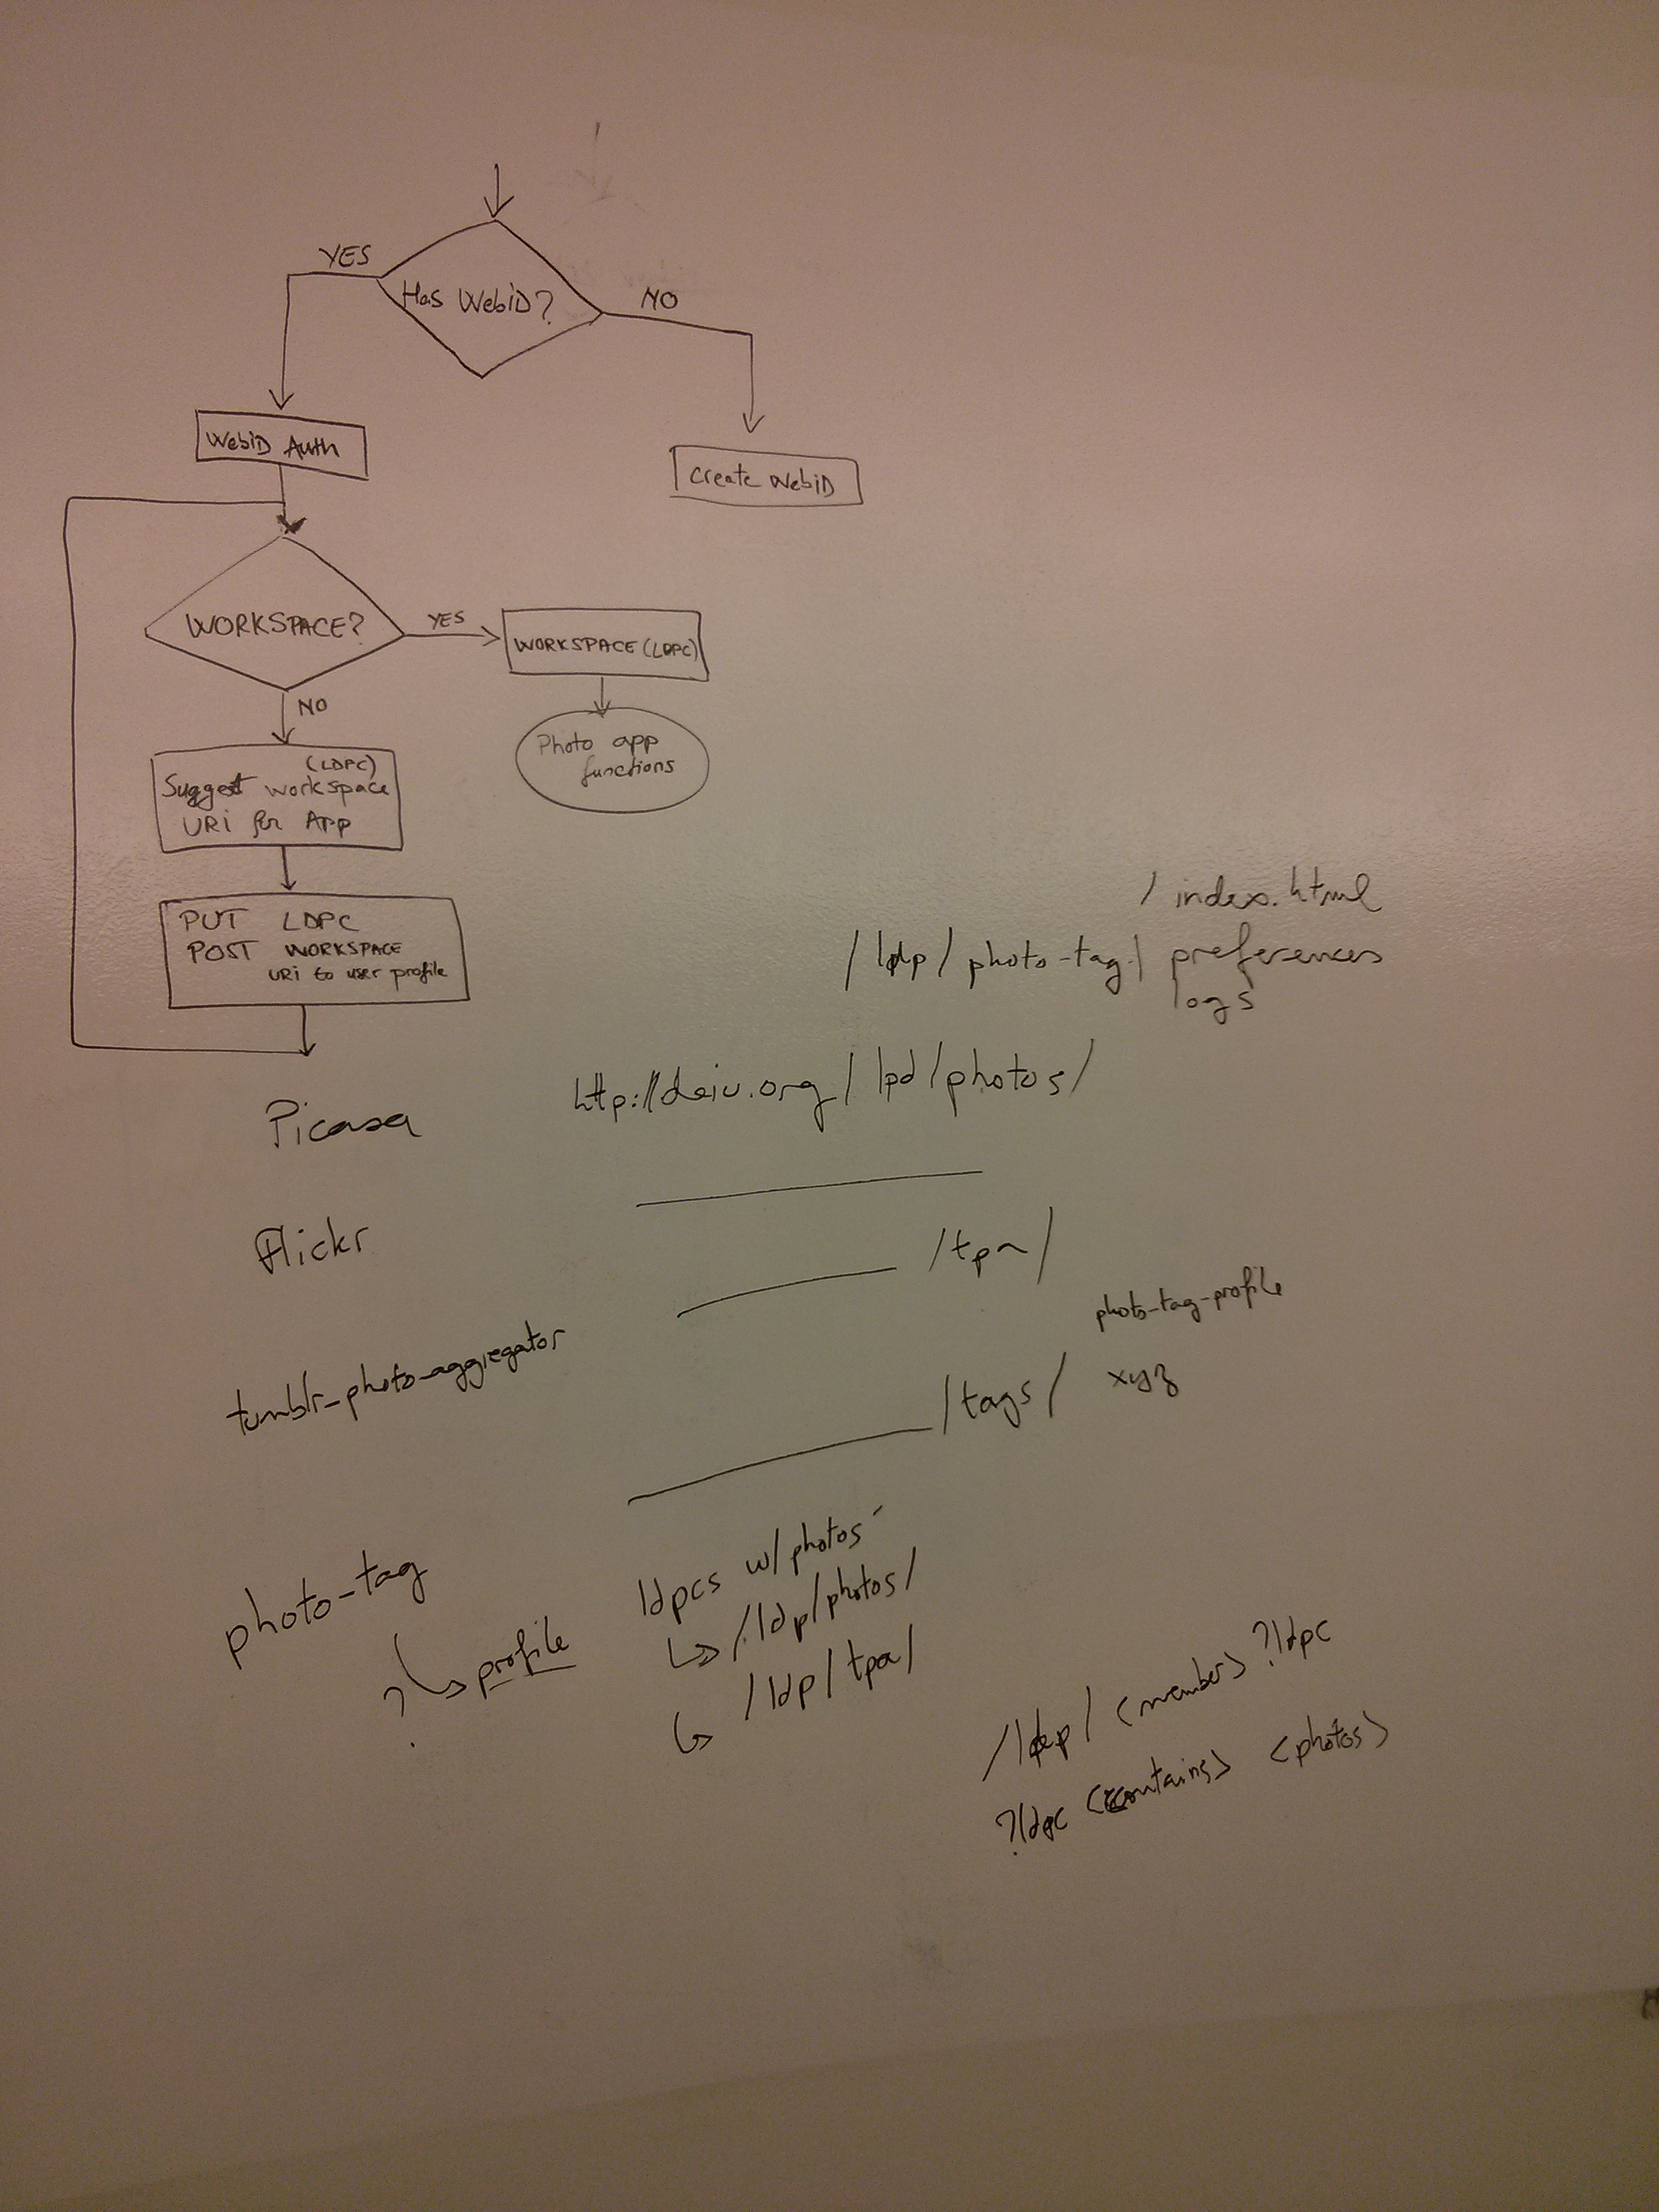 YES
Has WebiD?
NO
WebiD Auth
Create WebiD
WORKSPACE?
YES
WORKSPACE (LDPC)
NO
Photo app
functions
(LDPC)
Suggest workspace
URi for App
PUT LDPC
POST WORKSPACE
URi to user profile
/ index.html
/ldp/ photo-tag/ preferences
logs
http://deiu.org/ lpd/photos/
Picasa
Flickr
/tpa/
photo-tag-profile
tumblr-photo-aggregator
/tags/ xyz
ldpcs w/photos
photo-tag
/ldp/photos/
? profile
/ldp/tpa/
/ldp/ <member> ?ldpc
?ldpc <contains> <photos>